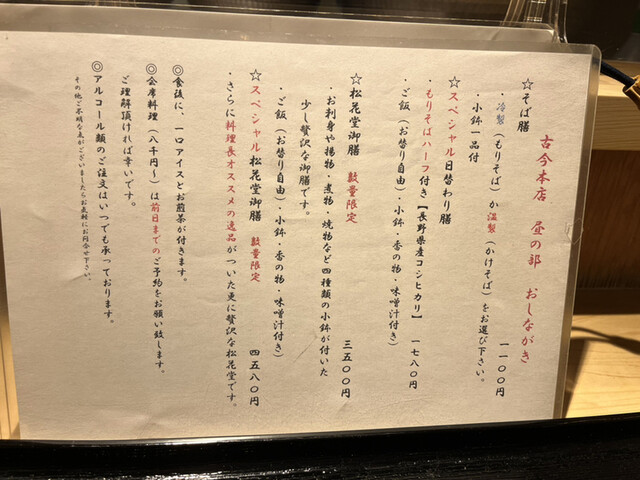 古今本店 昼の部 おしながき
☆そば膳 一一〇〇円
・冷製（もりそば）か温製（かけそば）をお選び下さい。
・小鉢一品付
☆スペシャル日替わり膳 一七八〇円
・もりそばハーフ付き【長野県産コシヒカリ】
・ご飯（お替り自由）・小鉢・香の物・味噌汁付き）
☆松花堂御膳 数量限定 三五〇〇円
・お刺身や揚物・煮物・焼物など四種類の小鉢が付いた
少し贅沢な御膳です。
・ご飯（お替り自由）・小鉢・香の物・味噌汁付き）
☆スペシャル松花堂御膳 数量限定 四五八〇円
・さらに料理長オススメの逸品がついた更に贅沢な松花堂です。
◎食後に、一口アイスとお煎茶が付きます。
◎会席料理（八千円〜）は前日までのご予約をお願い致します。
ご理解頂ければ幸いです。
◎アルコール類のご注文はいつでも承っております。
その他ご不明な点がございましたらお気軽にお問合せ下さい。